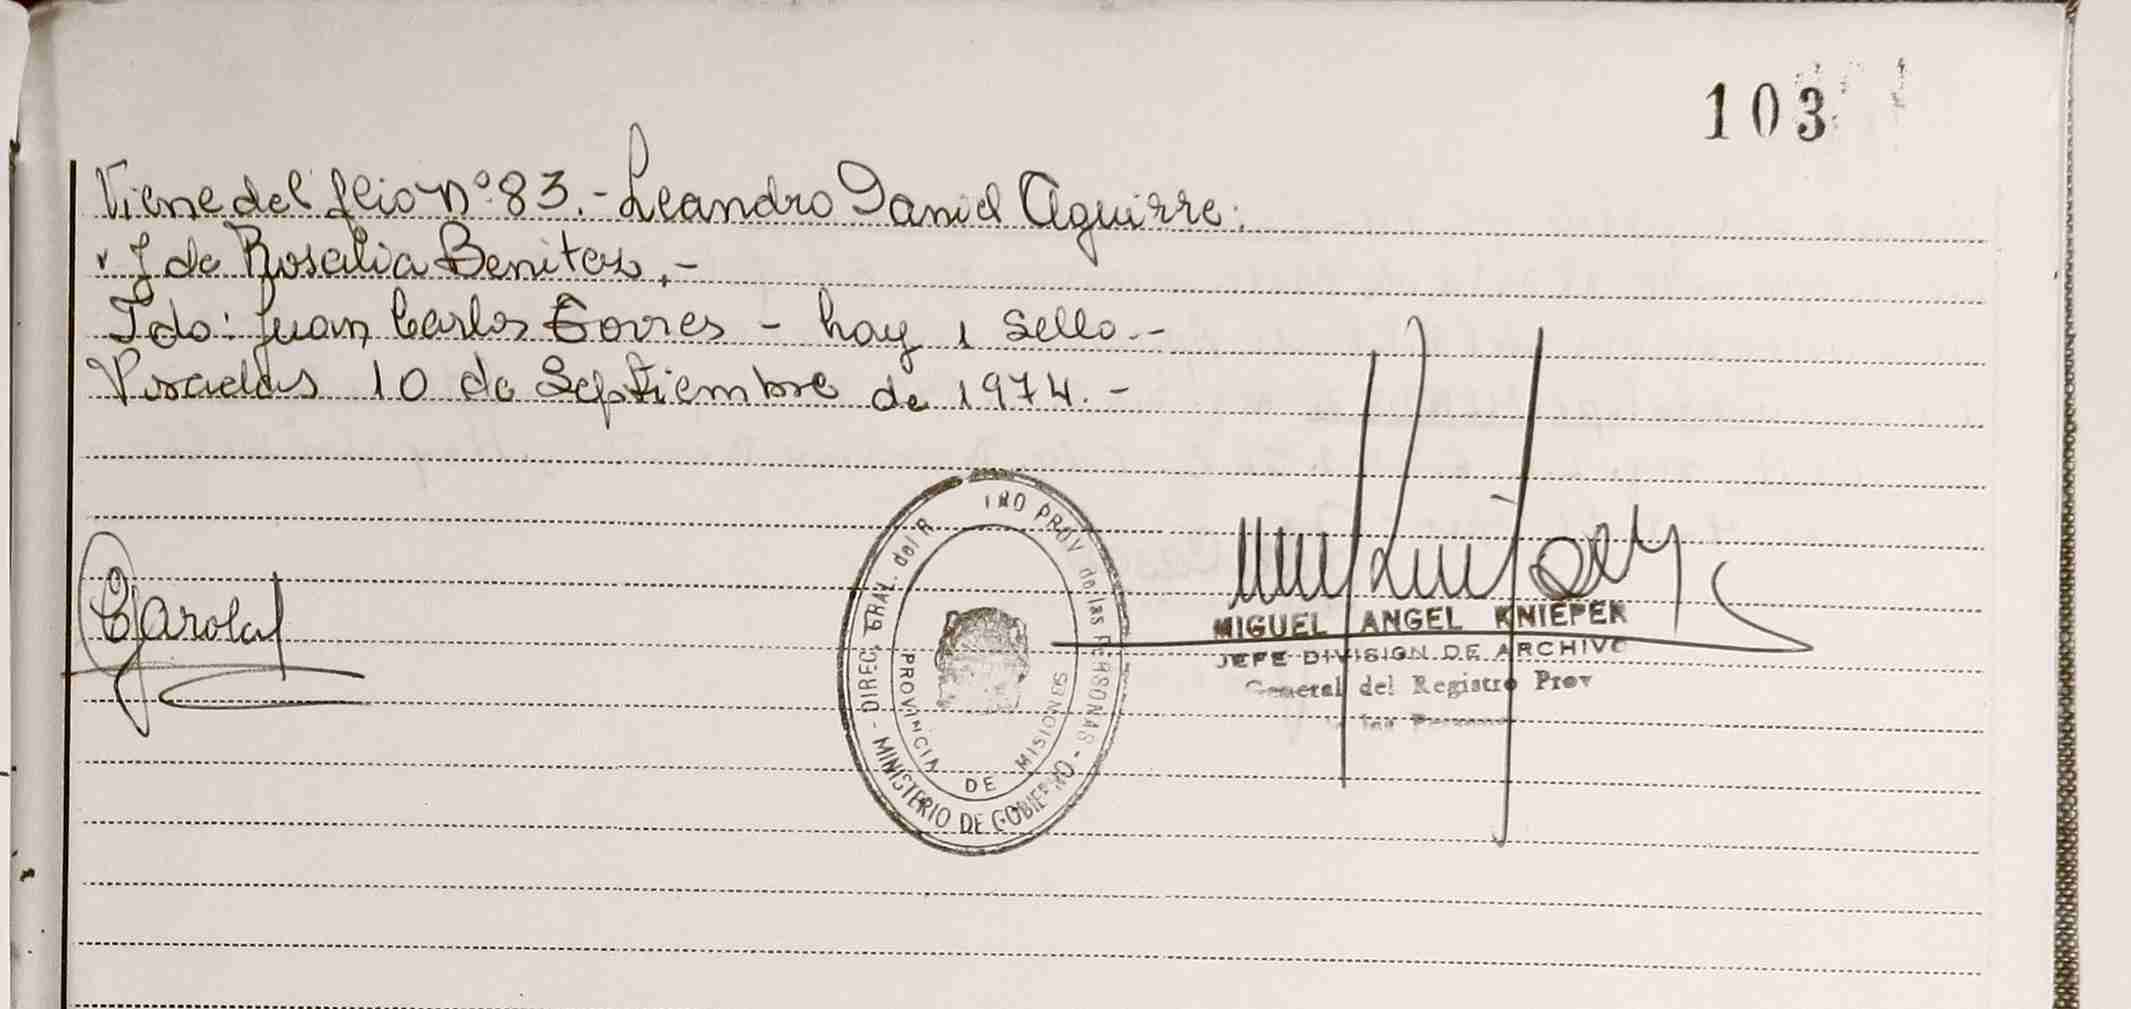 103
Viene del flio nº 83.- Leandro Daniel Aguirre.
y J de Rosalia Benitez.-
Fdo: Juan Carlos Torres - hay 1 sello.-
Posadas 10 de Septiembre de 1974.-
DIREC. GRAL. del R IRO PROV de las PERSONAS - MINISTERIO DE GOBIERNO -
PROVINCIA DE MISIONES
MIGUEL ANGEL KNIEPER
JEFE DIVISION DE ARCHIVO
General del Registro Prov